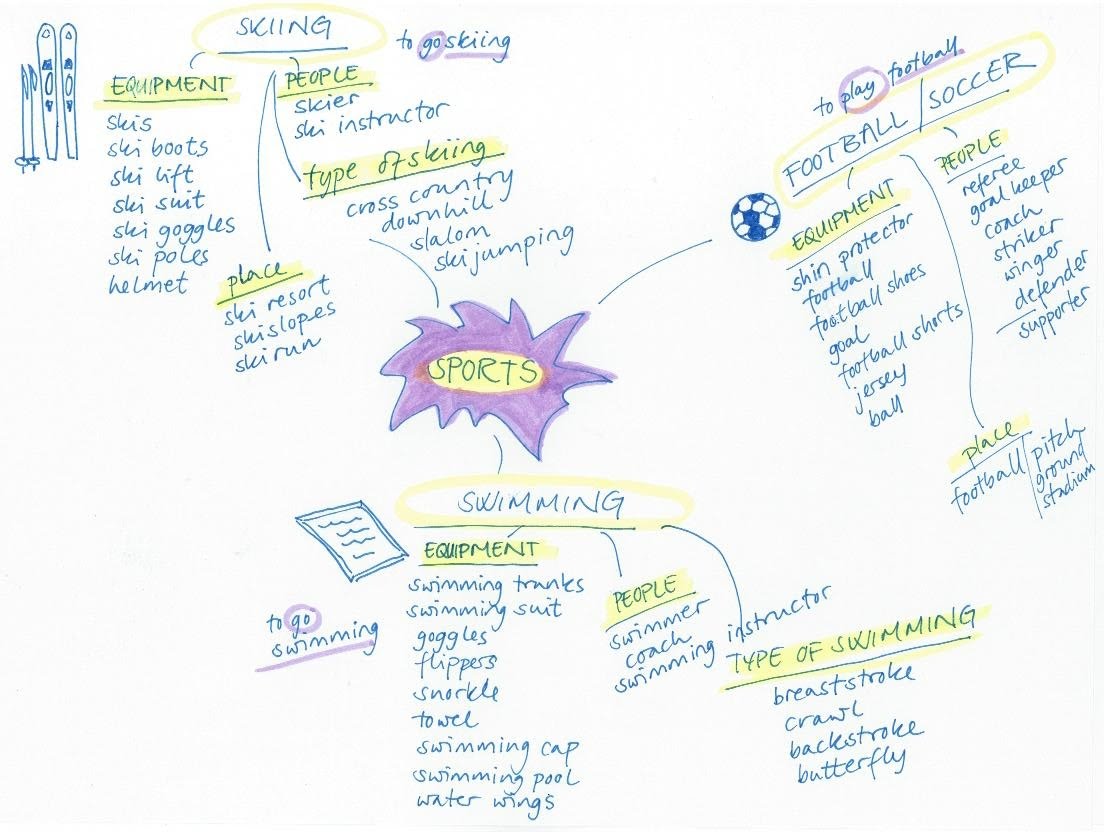 SKIING
to go skiing
EQUIPMENT
skis
ski boots
ski lift
ski suit
ski goggles
ski poles
helmet
PEOPLE
skier
ski instructor
type of skiing
cross country
downhill
slalom
skijumping
place
ski resort
skislopes
skirun
to play football
FOOTBALL / SOCCER
EQUIPMENT
shin protector
football
football shoes
goal
football shorts
jersey
ball
PEOPLE
referee
goal keeper
coach
striker
winger
defender
supporter
place
football / pitch
ground
stadium
SPORTS
SWIMMING
to go
swimming
EQUIPMENT
swimming trunks
swimming suit
goggles
flippers
snorkle
towel
swimming cap
swimming pool
water wings
PEOPLE
swimmer
coach
swimming instructor
TYPE OF SWIMMING
breaststroke
crawl
backstroke
butterfly